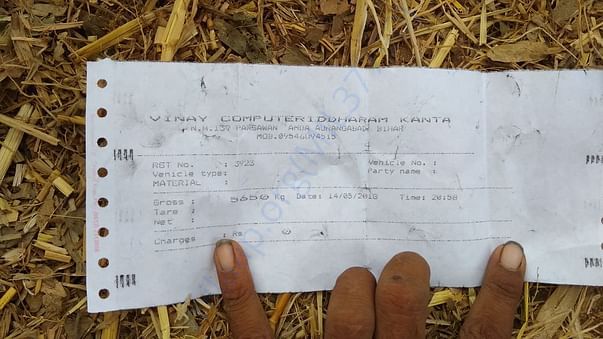 VINAY COMPUTERIDDHARAM KANTA
N.H.139 PARSAWAN AURANGABAD BIHAR
RST No. : 3923 Vehicle No. :
Vehicle type: Party name :
MATERIAL :
Gross : 5650 Kg Date: 14/05/2018 Time: 20:58
Tare :
Net :
Charges : Rs